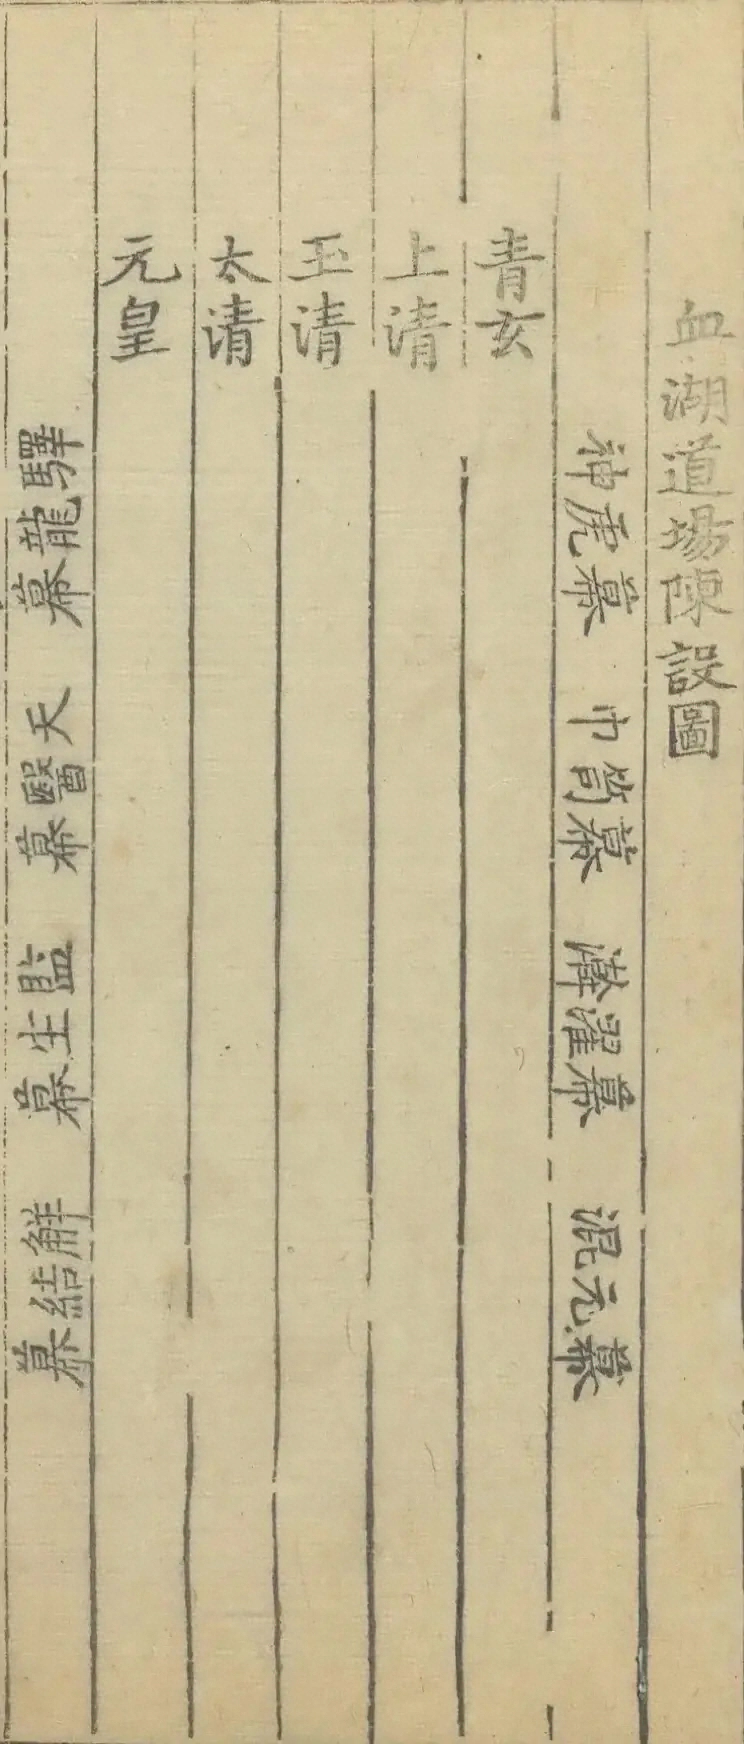 血湖道場陳設圖
神虎幕　巾笥幕　澣濯幕　混元幕
青玄
上清
玉清
太清
元皇
驛龍幕　天醫幕　監生幕　觧結幕